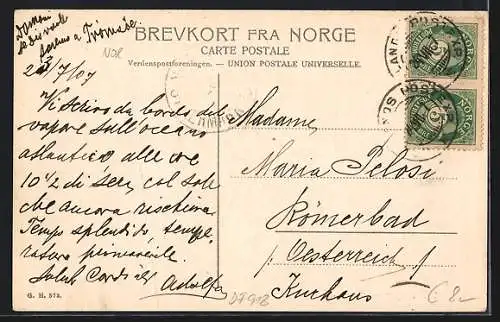 Domani
si devrà
a Tromsöe.
NOR
BREVKORT FRA NORGE
CARTE POSTALE
Verdenspostforeningen. - UNION POSTALE UNIVERSELLE.
23/7/07
Vi scrivo da bordo del
vapore sull'oceano
atlantico alle ore
10½ di sera, col sole
che ancora rischiara.
Tempo splendido, tempe-
ratura primaverile.
Saluti Cordiali
Adolfo
Madame
Maria Pelosi
Römerbad
/ Oesterreich /
Kurhaus
NORGE
NORGE
G. H. 573.
D7908
€ 8-